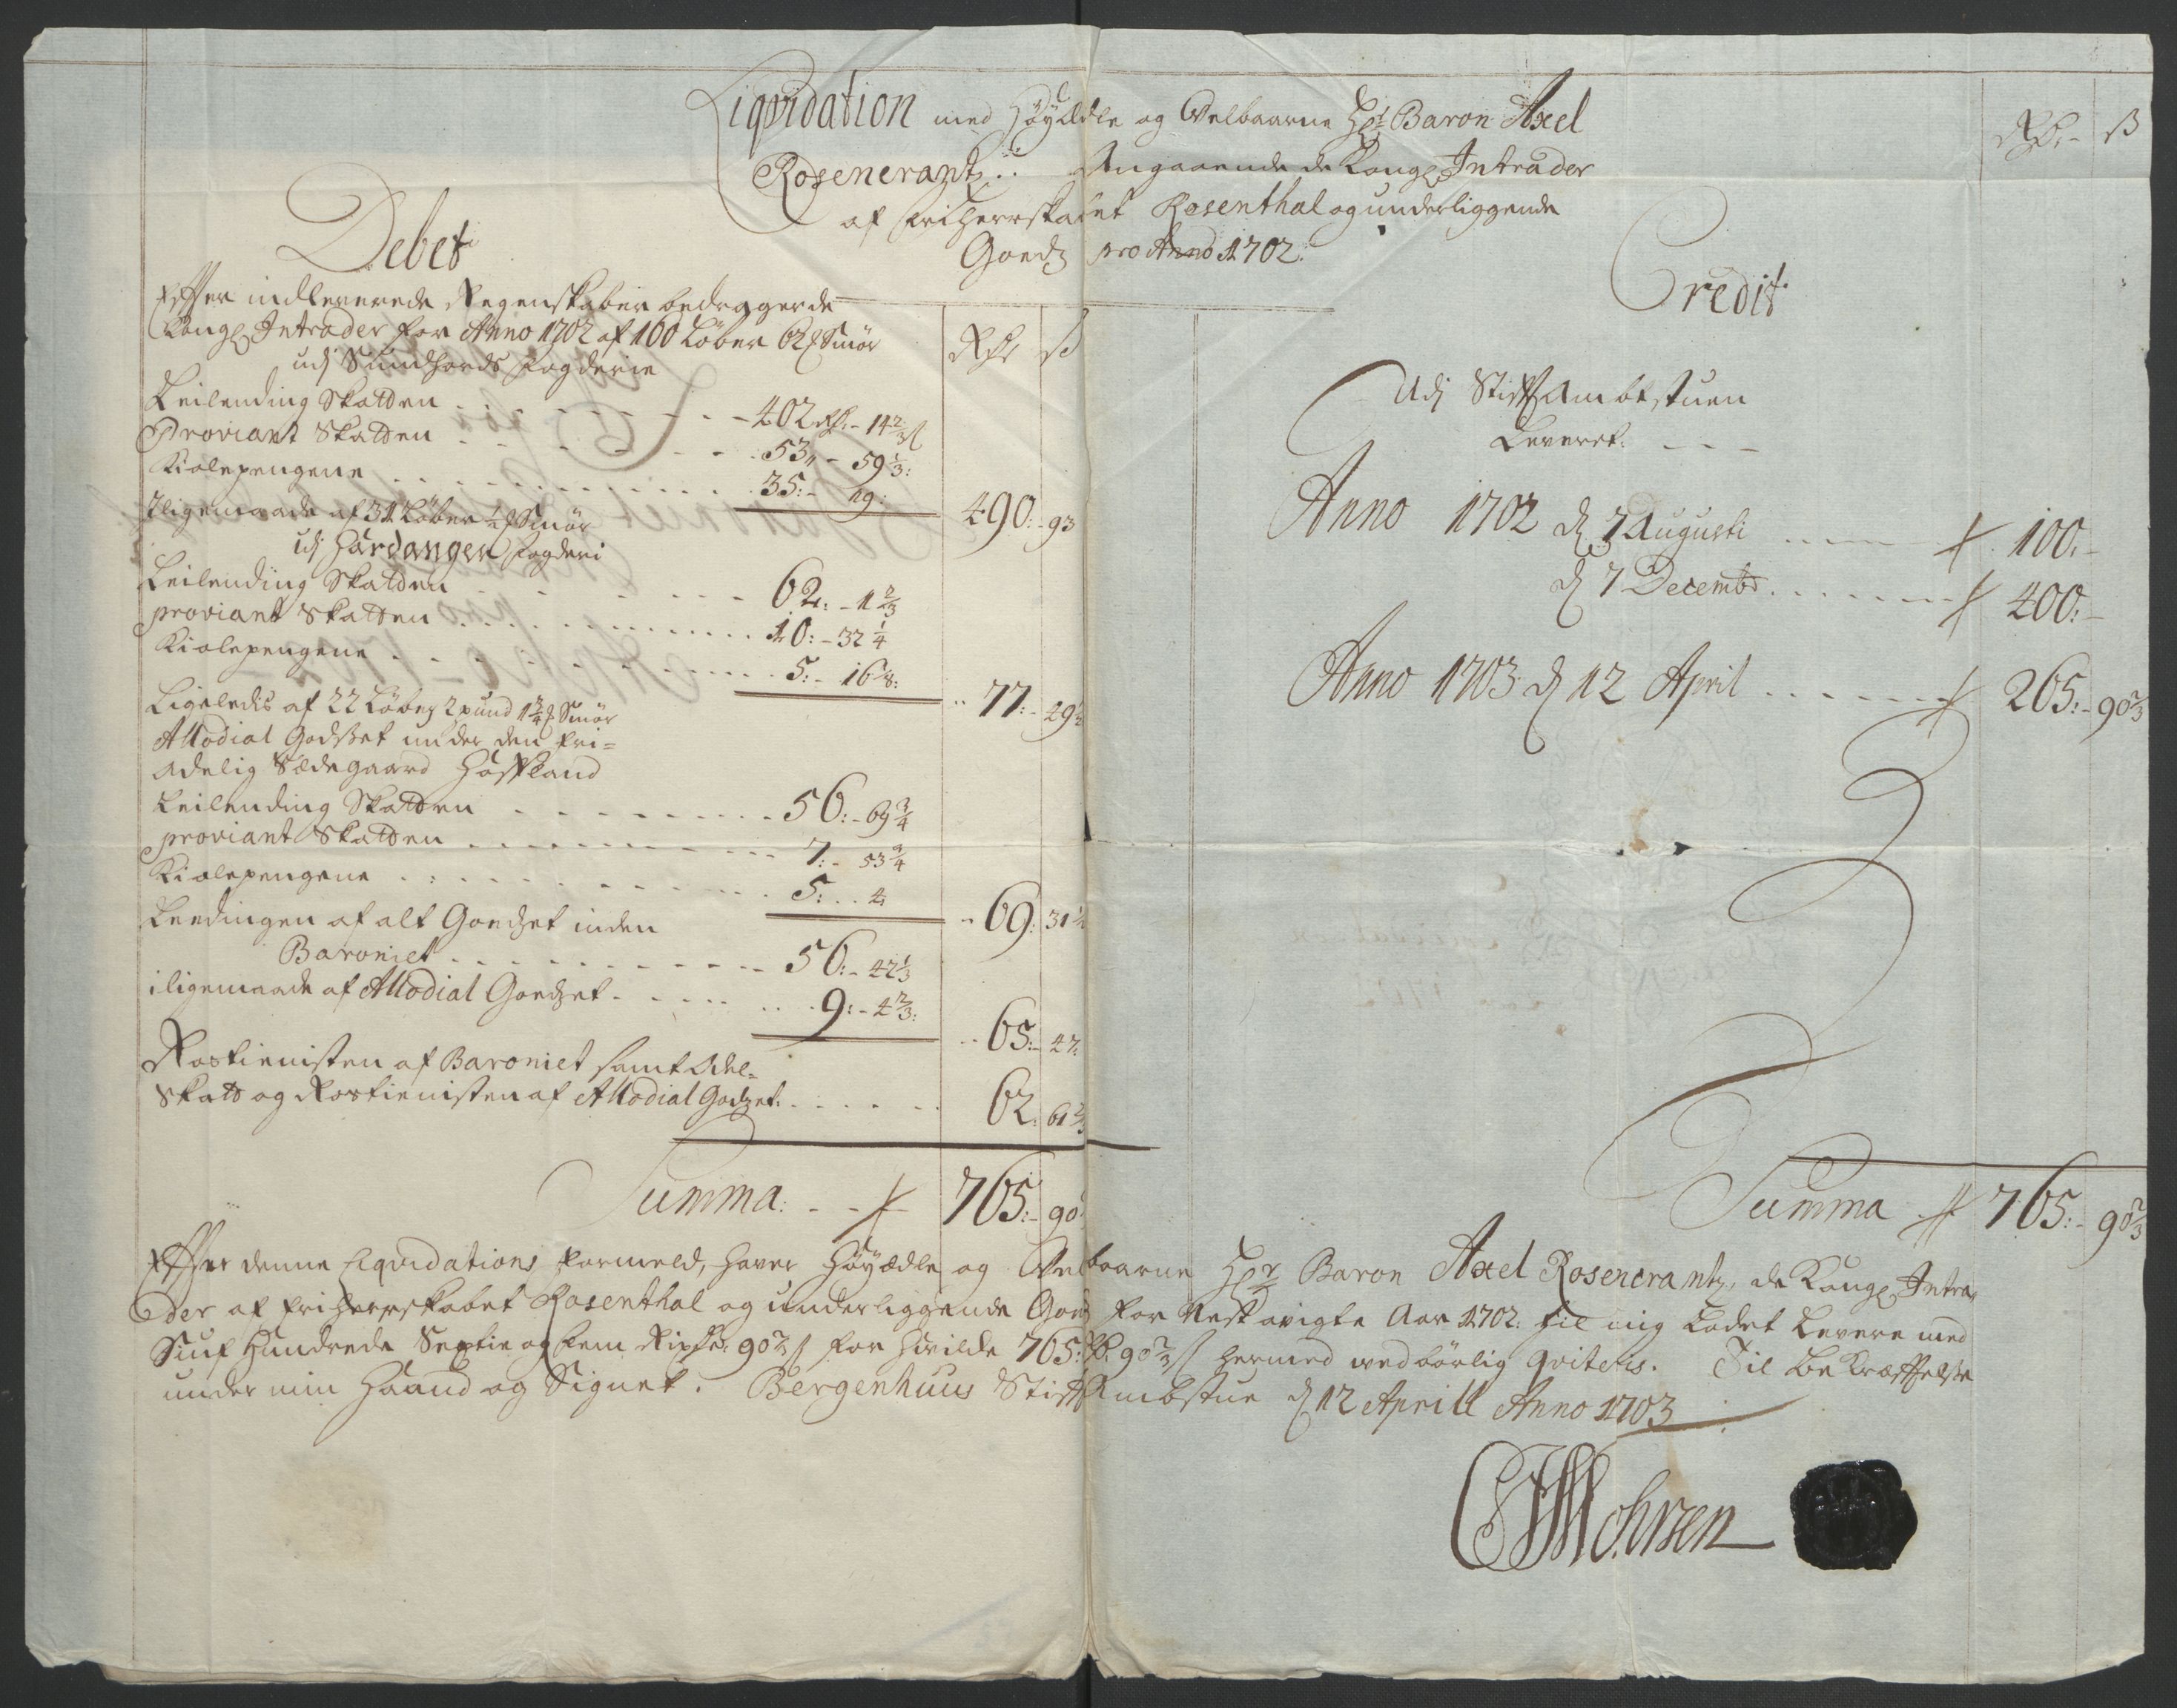 Liqvidation med Høyædle og Velbaarne Hr: Baron Axel
Rosencrantz.. Angaaende de Kongl: Intrader
af friherrskabet Rosenthal og underliggende
Goedz pro Anno 1702:
Rdr:- ß
Debet
Effter indleverede Regenskaber bedrager de
Kongl: Intrader for Anno 1702 af 160 Løber Smør
udj Sundhords fogderie
Rdr ß
Leilending Skatten - 402 Rdr: - 14 2/3 ß
Proviant Skatten - 53 „ - 59 1/3:
Kiolepengene - 35:- 19: 490:- 93
Iligemaade af 31 Løber Smør
udj Hardanger fogderi
Leilending Skatten - 62: - 1 2/3
proviant Skatten - 10: - 32 1/4
Kiolepengene - 5:- 16 77:- 49 1/2
Ligeledis af 22 Løber 2 pund 1 3/4 Smør
Allodial Godset under den fri=
adelig Sædegaard Hatteland
Leilending Skatten - 56:- 69 3/4
proviant Skatten - 7:- 53 3/4
Kiolepengene - 5: . . 4 69: 31 1/2
Leedingen af alt Goedzet inden
Baroniet - 56:- 42 1/3
iligemaade af Allodial Goedzet - 9:- 4 2/3: 65:- 47:
Rostienisten af Baroniet samt Adel=
Skatt og Rostienisten af Allodial Godzet: 62: 61
Summa: 765:- 90
Credit
Udj Stifft Ambtstuen
Leveret:
Anno 1702 d 7 Augusti 100:-
d 7 Decembr 400:-
Anno 1703 d 12 April 265:- 90 2/3
Summa 765:- 90 2/3
Effter denne Liqvidations formeld, haver Høyædle og Velbaarne Hr: Baron Axel Rosencrantz, de Kongl: Intra,
der af friherrskabet Rosenthal og underliggende Goedz for Nestavigte Aar 1702: til mig Ladet Levere med
Siuf Hundrede Sextie og fem Rixdr: 90 2/3 ß for hvilde 765: Rdr. 90 2/3 ß hermed vedbørlig qviteris. Til Bekræfftelse
under min Haand og Signet. Bergenhuus Stifft Ambstue d 12 Aprill Anno 1703
Mohrsen